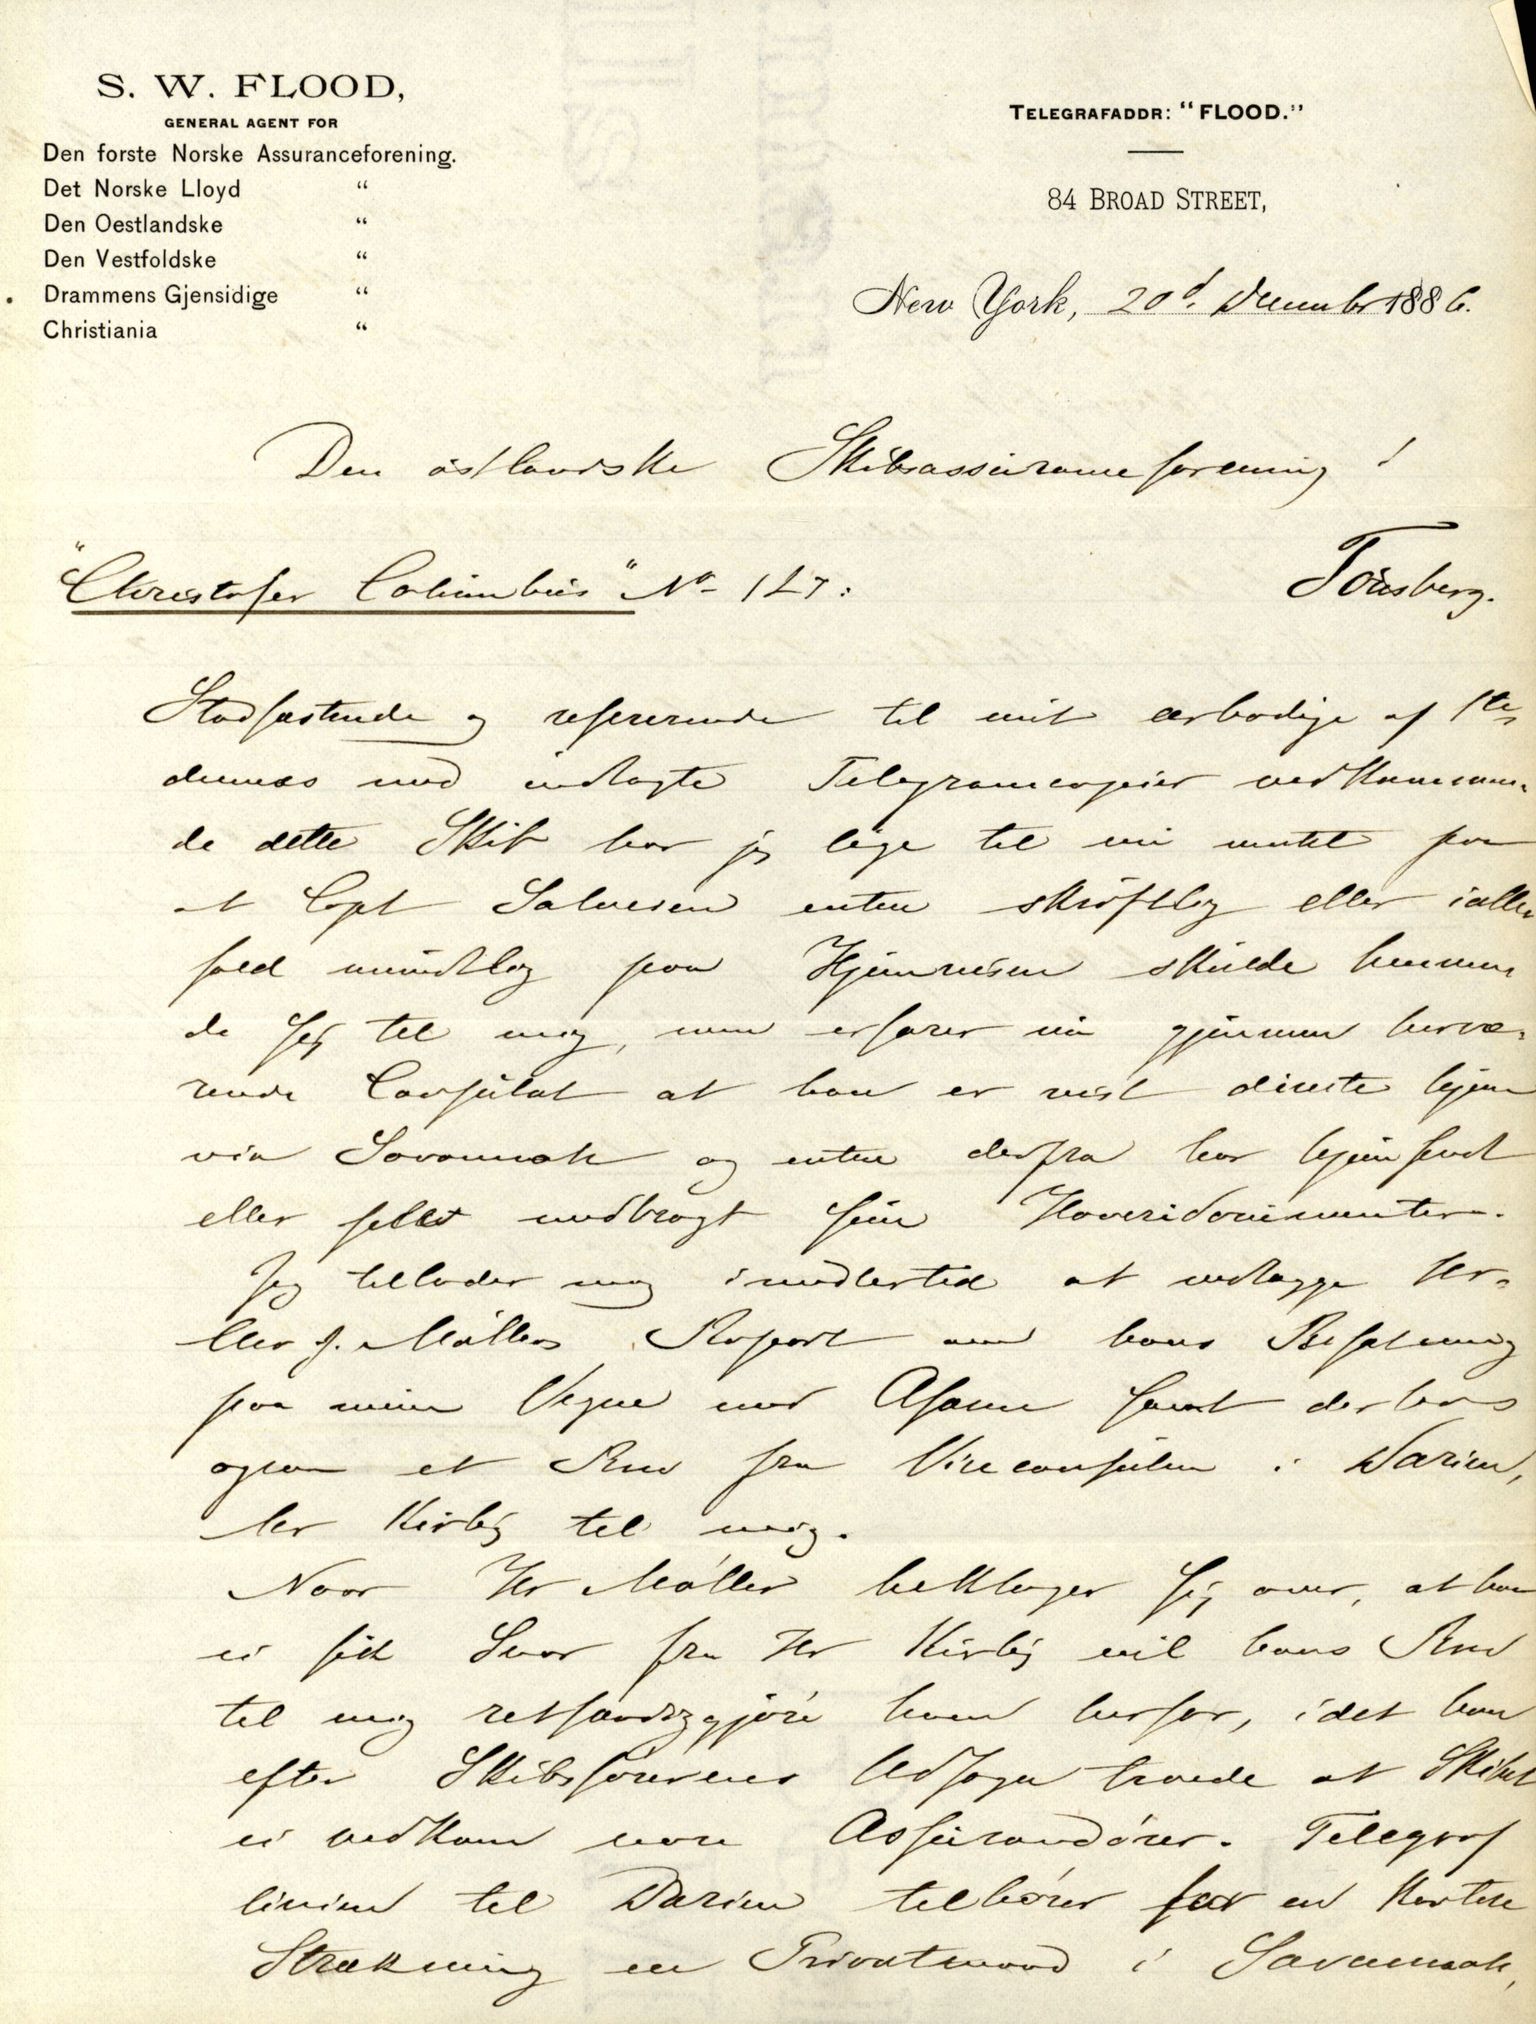 S. W. FLOOD,
GENERAL AGENT FOR
Den forste Norske Assuranceforening.
Det Norske Lloyd "
Den Oestlandske "
Den Vestfoldske "
Drammens Gjensidige "
Christiania "
TELEGRAFADDR: "FLOOD."
84 BROAD STREET,
New York, 20d. December 1886.
Den östlandske Skibsassuranceforening i
Tönsberg.
"Christofer Columbus" No 127:
Stadfæstende og refererende til mit ærbödige af 1ste
dennes med indlagte Telegramcopier vedkommen-
de dette Skib har jeg lige til nu ventet paa
at Capt Salvesen enten skriftlig eller iallen
fald mundtlig paa Hjemreisen skulde henven
de sig til mig, men erfarer nu gjennem herve-
rende Consulat at han er reist directe hjem
via Savannah og enten derfra har hjemsendt
eller selv medbragt sine Havaridocumenter.
Jeg tillader mig imidlertid at vedlægge Hr.
Chr J. Möllers Raport om hans Befatning
paa mine Vegne med Asøen samt derhos
ogsaa et Brev fra Viceconsulen i Darien,
Hr Kirby til mig.
Naar Hr Möller beklager sig over, at han
ei fik Svar fra Hr Kirby vil hans Brev
til mig retfærdiggjöre ham herfor, idet han
efter Skibsförerens Udsagn troede at Skibet
ei vedkom vore Assurandörer. Telegraf
linien til Darien tilhörer for en kortere
Strækning en Privatmand i Savannah,